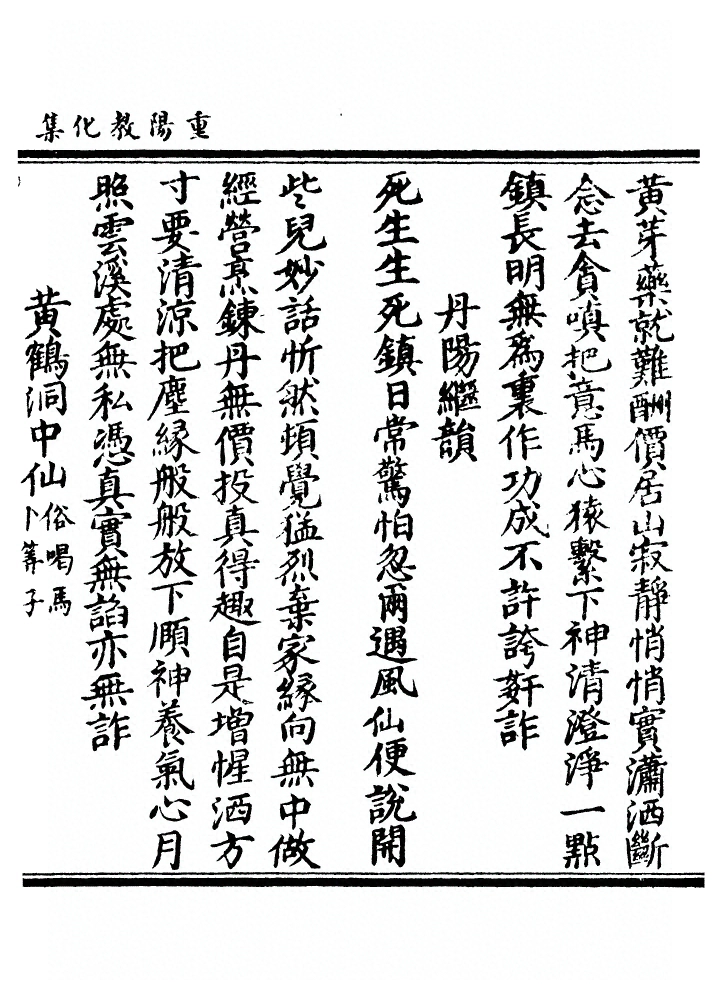 重陽教化集
黃芽藥就難酬價居山寂靜悄悄實瀟洒斷
念去貪嗔把意馬心猿繫下神清澄淨一點
鎮長明無爲裏作功成不許誇姧詐
丹陽繼韻
死生生死鎮日常驚怕忽爾遇風仙便說開
些兒妙話忻然頓覺猛烈棄家緣向無中做
經營烹鍊丹無價投真得趣自是增惺洒方
寸要清涼把塵緣般般放下頤神養氣心月
照雲溪處無私憑真實無諂亦無詐
黃鶴洞中仙俗喝馬
卜筭子